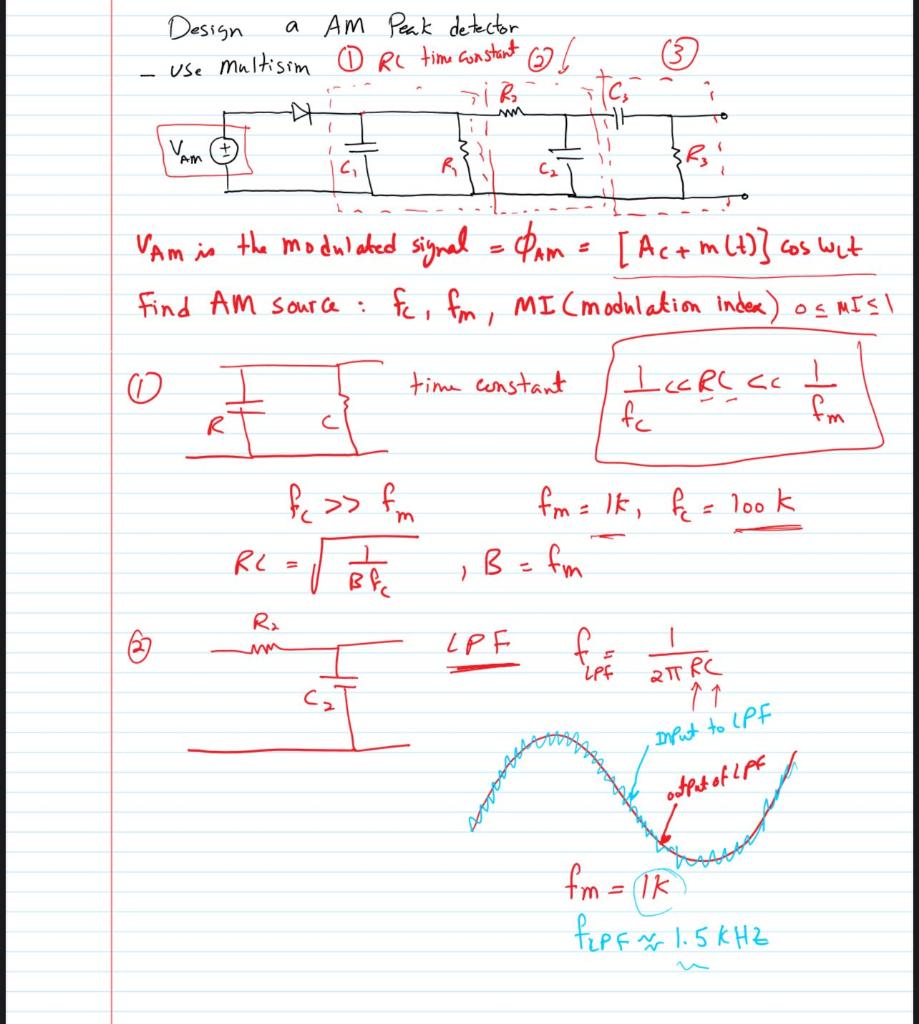 Design a AM Peak detector
- use multisim ① RC time constant ② ③
VAM C₁ R₁ R₂ C₂ C₃ R₃
VAM is the modulated signal = ΦAM = [Ac + m(t)] cos wct
Find AM source : fc, fm, MI (modulation index) 0 ≤ MI ≤ 1
① R C time constant 1/fc << RC << 1/fm
fc >> fm fm = 1k, fc = 100 k
RC = √(1/(B fc)) , B = fm
② R₂ C₂ LPF fLPF = 1/(2π RC)
Input to LPF
output of LPF
fm = 1k
fLPF ≈ 1.5 KHz